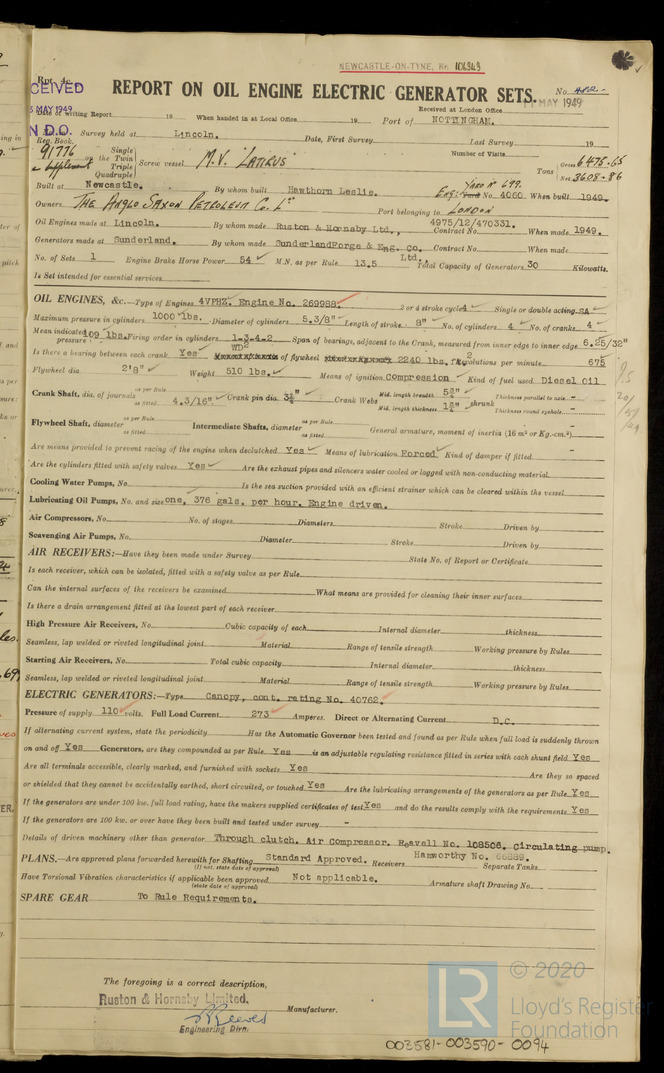 NEWCASTLE-ON-TYNE, Rr. 106343
Rpt. 4c.
CEIVED
REPORT ON OIL ENGINE ELECTRIC GENERATOR SETS.
No. 4802.
MAY 1949
Received at London Office
MAY 1949
Date of writing Report 19 When handed in at Local Office 19 Port of NOTTINGHAM.
N D.O.
Survey held at Lincoln. Date, First Survey Last Survey 19
Reg. Book.
Number of Visits
91776 on the Single Twin Triple Quadruple Screw vessel M.V. "LATIRUS" Tons Gross 6478.65 Net 3608.86
Supplement
Built at Newcastle. By whom built Hawthorn Leslie. YARD No 699. Eng: No. 4060 When built 1949.
Owners THE ANGLO SAXON PETROLEUM Co. Ld Port belonging to LONDON
Oil Engines made at Lincoln. By whom made Ruston & Hornsby Ltd., Contract No. 4975/12/470331. When made 1949.
Generators made at Sunderland. By whom made SunderlandForge & Eng. Co. Ltd., Contract No. When made
No. of Sets 1 Engine Brake Horse Power 54 M.N. as per Rule 13.5 Total Capacity of Generators 30 Kilowatts.
Is Set intended for essential services
OIL ENGINES, &c.—Type of Engines 4VPHZ. Engine No. 269988. 2 or 4 stroke cycle 4 Single or double acting SA
Maximum pressure in cylinders 1000 lbs. Diameter of cylinders 5.3/8" Length of stroke 8" No. of cylinders 4 No. of cranks 4
Mean indicated pressure 109 lbs. Firing order in cylinders 1-3-4-2 Span of bearings, adjacent to the Crank, measured from inner edge to inner edge 6.25/32"
Is there a bearing between each crank Yes WD2 of flywheel 2240 lbs. ft2 Revolutions per minute 675
Flywheel dia. 2'8" Weight 510 lbs. Means of ignition Compression Kind of fuel used Diesel oil
Crank Shaft, dia. of journals as per Rule as fitted 4.3/16" Crank pin dia. Crank Webs Mid. length breadth Mid. length thickness shrunk Thickness parallel to axis - Thickness round eyehole -
Flywheel Shaft, diameter as per Rule as fitted Intermediate Shafts, diameter as per Rule as fitted General armature, moment of inertia (16 m² or Kg.-cm.²)
Are means provided to prevent racing of the engine when declutched Yes Means of lubrication Forced Kind of damper if fitted -
Are the cylinders fitted with safety valves Yes Are the exhaust pipes and silencers water cooled or lagged with non-conducting material
Cooling Water Pumps, No. Is the sea suction provided with an efficient strainer which can be cleared within the vessel
Lubricating Oil Pumps, No. and size one, 376 gals. per hour. Engine driven.
Air Compressors, No. No. of stages Diameters Stroke Driven by
Scavenging Air Pumps, No. Diameter Stroke Driven by
AIR RECEIVERS:—Have they been made under Survey State No. of Report or Certificate
Is each receiver, which can be isolated, fitted with a safety valve as per Rule
Can the internal surfaces of the receivers be examined What means are provided for cleaning their inner surfaces
Is there a drain arrangement fitted at the lowest part of each receiver
High Pressure Air Receivers, No. Cubic capacity of each Internal diameter thickness
Seamless, lap welded or riveted longitudinal joint Material Range of tensile strength Working pressure by Rules
Starting Air Receivers, No. Total cubic capacity Internal diameter thickness
Seamless, lap welded or riveted longitudinal joint Material Range of tensile strength Working pressure by Rules
ELECTRIC GENERATORS:—Type Canopy, cont. rating No. 40762.
Pressure of supply 110 volts. Full Load Current 273 Amperes. Direct or Alternating Current D.C.
If alternating current system, state the periodicity Has the Automatic Governor been tested and found as per Rule when full load is suddenly thrown
on and off Yes Generators, are they compounded as per Rule Yes is an adjustable regulating resistance fitted in series with each shunt field Yes
Are all terminals accessible, clearly marked, and furnished with sockets Yes Are they so spaced
or shielded that they cannot be accidentally earthed, short circuited, or touched Yes Are the lubricating arrangements of the generators as per Rule Yes
If the generators are under 100 kw. full load rating, have the makers supplied certificates of test Yes and do the results comply with the requirements Yes
If the generators are 100 kw. or over have they been built and tested under survey -
Details of driven machinery other than generator Through clutch. Air Compressor. Reavell No. 108506. Circulating pump.
Hamworthy No. 66889.
PLANS.—Are approved plans forwarded herewith for Shafting Standard Approved. Receivers Separate Tanks
(If not, state date of approval)
Have Torsional Vibration characteristics if applicable been approved Not applicable. Armature shaft Drawing No.
(state date of approval)
SPARE GEAR To Rule Requirements.
The foregoing is a correct description,
Ruston & Hornsby Limited.
Manufacturer.
Engineering Divn.
LR © 2020
Lloyd's Register
Foundation
003581-003590-0094